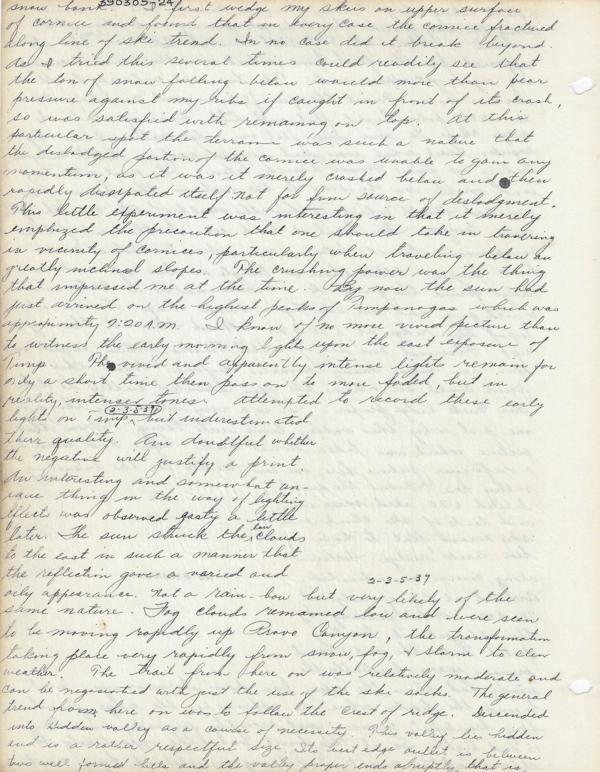 390305-24
snow bank. first wedge my skiis on upper surface
of cornice and found that in every case the cornice fractured
along line of ski trend. In no case did it break beyond.
As I tried this several times could readily see that
the ton of snow falling below would more than
pressure against my ribs if caught in front of its crash,
so was satisfied with remaining on top. At this
particular spot the terrain was such a nature that
the dislodged portion of the cornice was unable to gain any
momentum, as it was it merely crashed below and then
rapidly dissipated itself not far from source of dislodgment.
This little experiment was interesting in that it merely
emphized the precaution that one should take in travering
in vicinity of cornices, particularly when traveling below on
greatly inclined slopes. The crushing power was the thing
that impressed me at the time. By now the sun had
just arrived on the highest peaks of Timpanogas which was
approximity 7:20 A.M. I know of no more vivid picture than
to witness the early morning lights upon the east exposure of
Timp. The vivid and apparently intense lights remain for
only a short time then pass on to more faded, but in
reality, intenser tones. Attempted to record these early
2-3-5-39
lights on Timp, but underestimated
their quality. Am doubtful whether
the negative will justify a print.
An interesting and somewhat un-
ique thing in the way of lighting
effects was observed a little
later. The sun struck the low clouds
to the east in such a manner that
the reflection gave a varied and
2-3-5-39
oily appearance. Not a rain-bow but very likely of the
same nature. Fog clouds remained low and were seen
to be moving rapidly up Provo Canyon, the transformation
taking place very rapidly from snow, fog, & storm to clear
weather. The trail from here on was relatively moderate and
can be negotiated with just the use of the ski socks. The general
trend from here on was to follow the crest of ridge. Descended
into hidden valley as a course of necessity. This valley lies hidden
and is a rather respectful size. Its west edge outlet is between
two well formed hills and the valley proper ends abruptly, that is